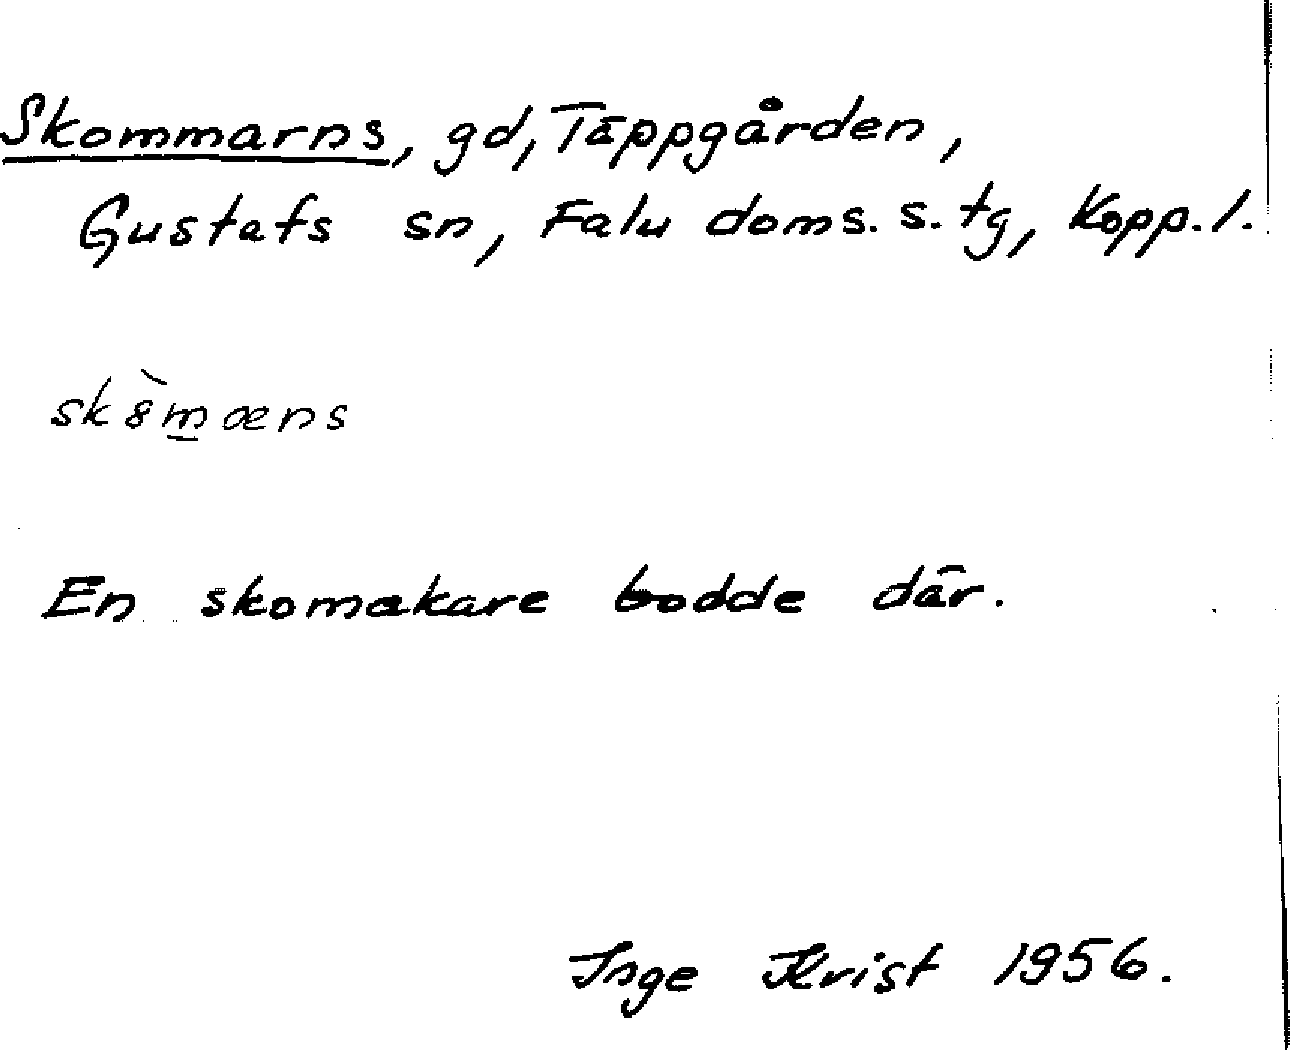 Skommarns, gd, Täppgården,
Gustafs sn, Falu doms. s. tg, Kopp. l.
En skomakare bodde där.
Inge Kvist 1956.